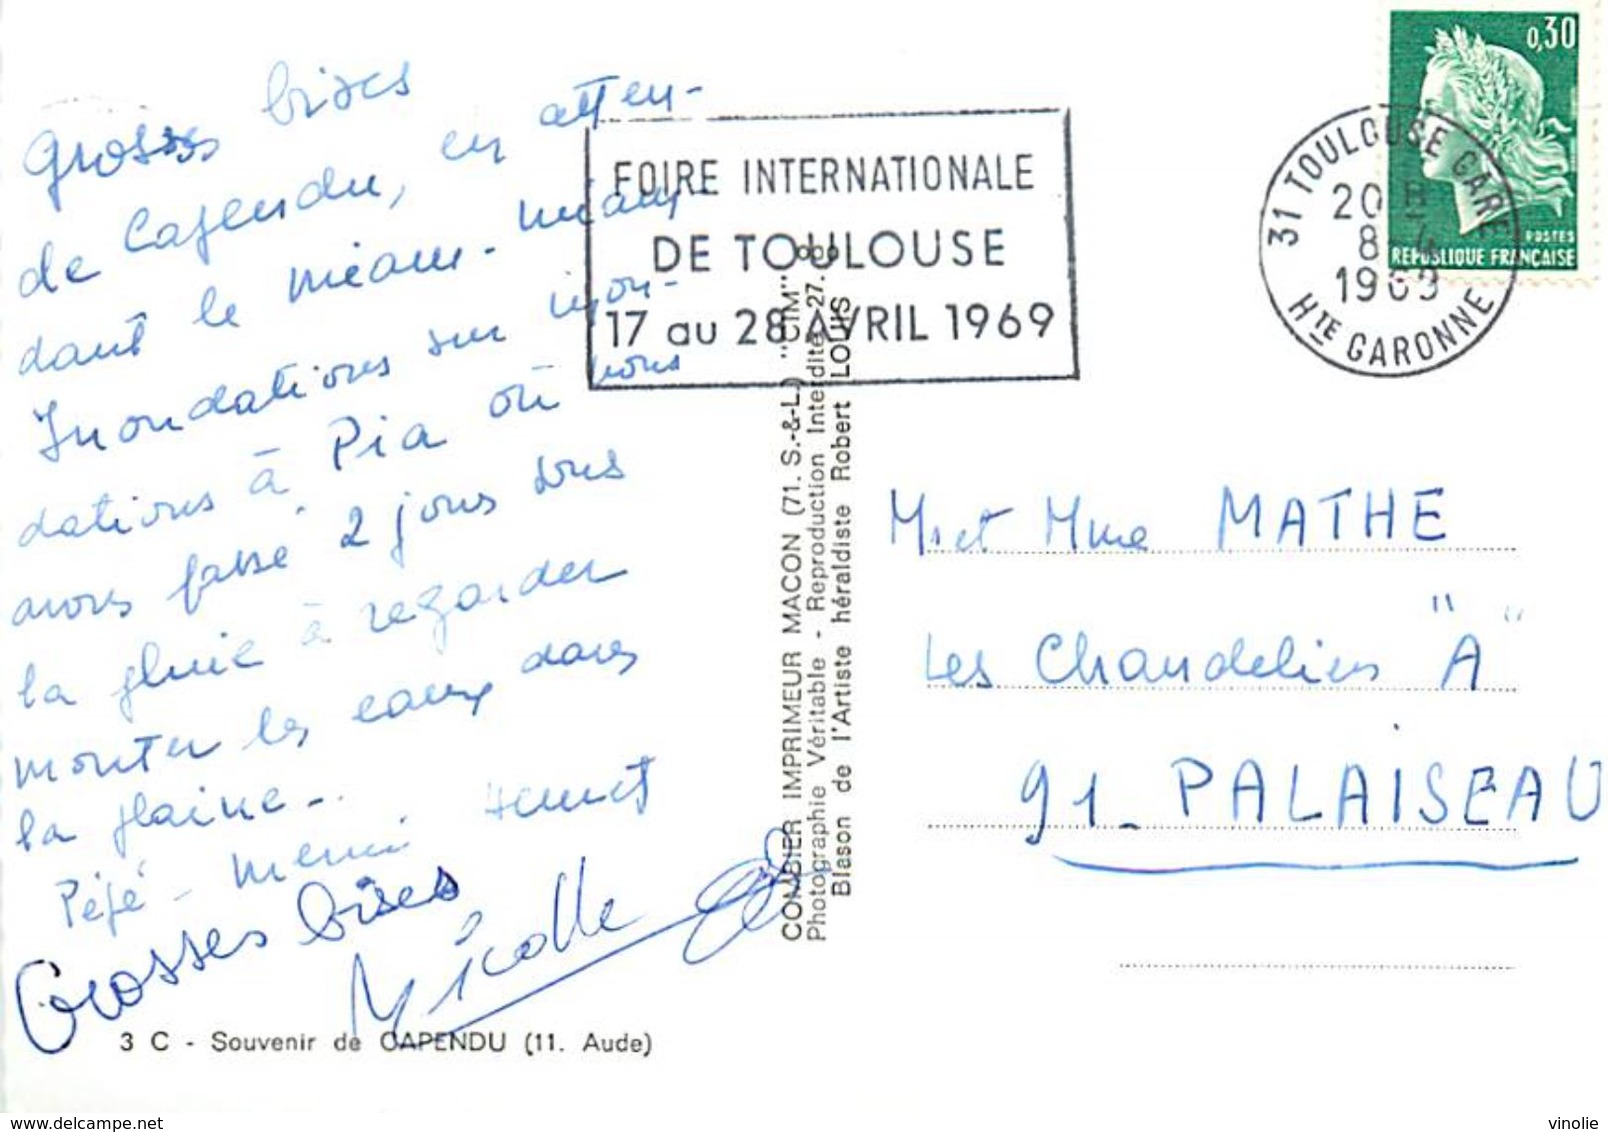 Grosses bises
de Capendu, en atten-
dant le miam-miam -
Inondations sur inon-
dations à Pia où nous
avons passé 2 jours sous
la pluie à regarder
monter les eaux dans
la plaine -..
Pépé - Mémé
Grosses bises
Nicolle
3 C - Souvenir de CAPENDU (11. Aude)
FOIRE INTERNATIONALE
DE TOULOUSE
17 au 28 AVRIL 1969
COMBIER IMPRIMEUR MACON (71. S.-&-L.) "CIM"
Photographie Véritable - Reproduction Interdite
Blason de l'Artiste héraldiste Robert LOUIS
0,30
POSTES
REPUBLIQUE FRANÇAISE
31 TOULOUSE GARE
20 H
8 - 4
1969
HTE GARONNE
Mr et Mme MATHE
Les Chandeliers "A"
91_ PALAISEAU
vinolie